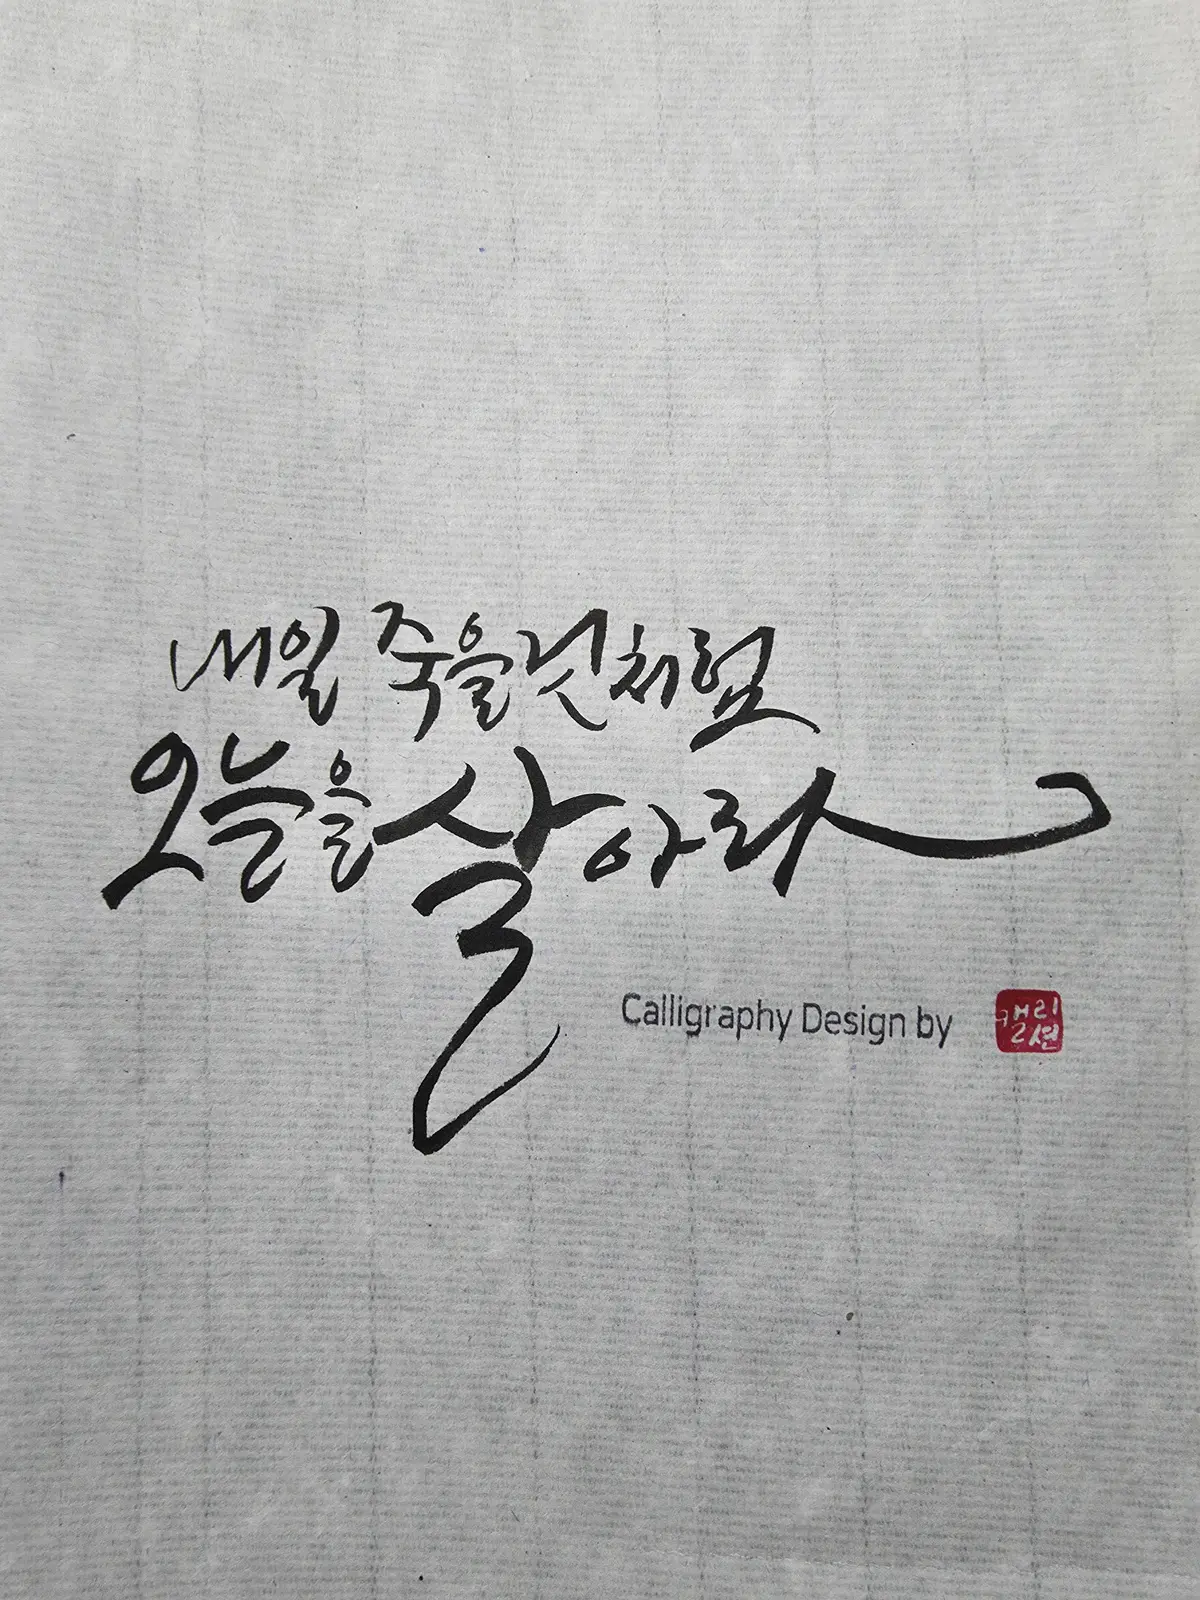 내일 죽을 것처럼
오늘을 살아라
Calligraphy Design by
캘리션